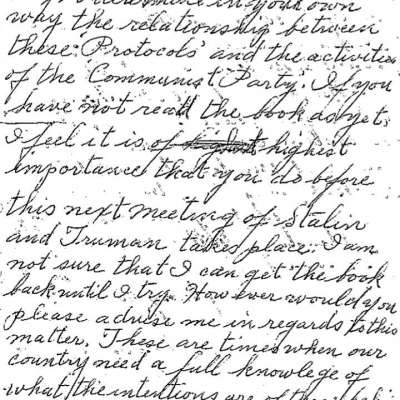 in your own
way the relationship between
these Protocols' and the activities
of the Communist Party. If you
have not read the book as yet,
I feel it is of highest
importance that you do before
this next meeting of Stalin
and Truman takes place. I am
not sure that I can get the book
back until I try. How ever would you
please advise me in regards to this
matter. These are times when our
country need a full knowlege of
what the intentions are of